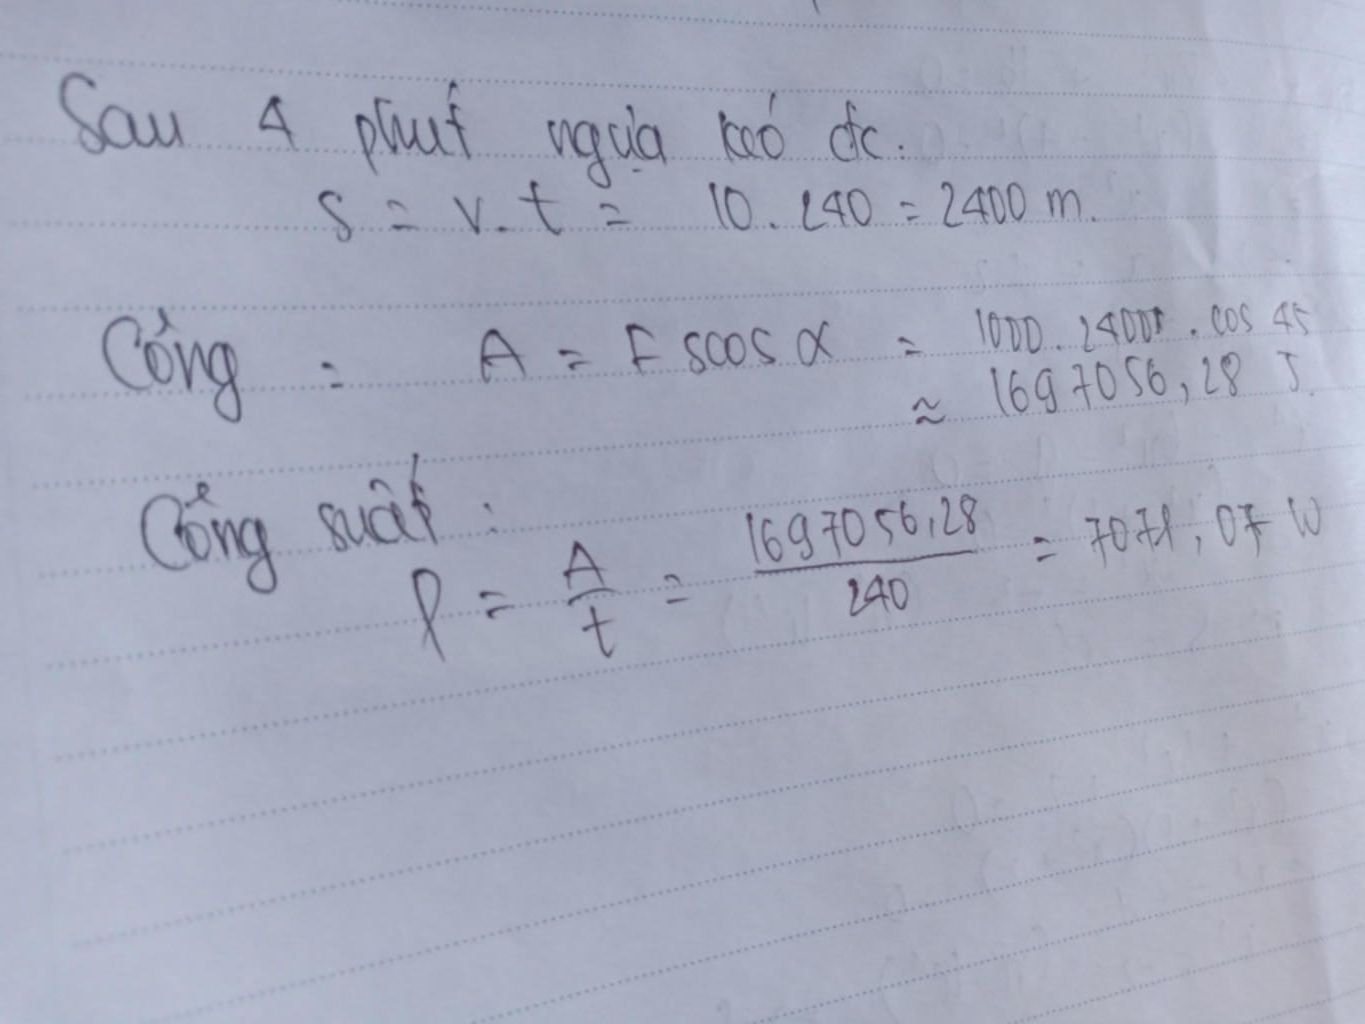 Sau 4 phút ngựa kéo đc.
s = v. t = 10. 240 = 2400 m.
Công : A = F s cos α = 1000. 2400 . cos 45
≈ 1697056,28 J.
Công suất :
P = A/t = 1697056,28/240 = 7071,07 W